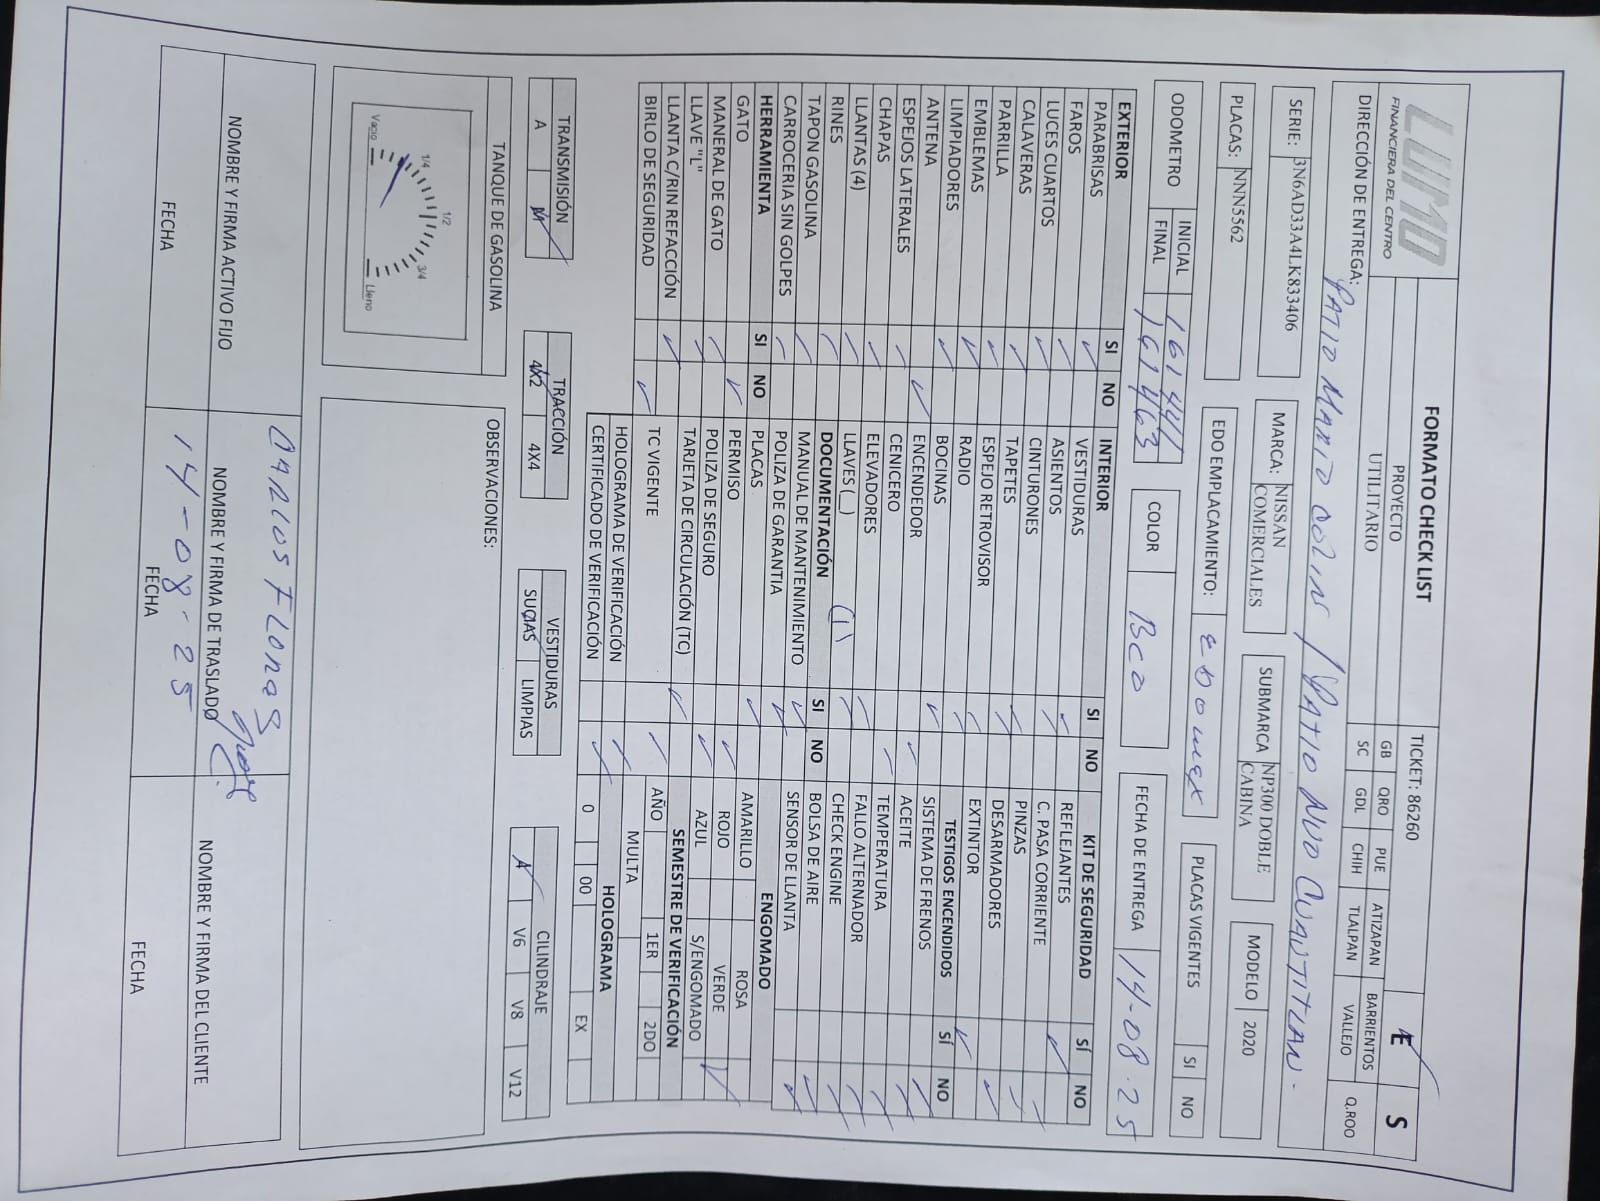 LUMO
FINANCIERA DEL CENTRO
FORMATO CHECK LIST
PROYECTO
UTILITARIO
TICKET: 86260
E
S
GB QRO PUE ATIZAPAN BARRIENTOS Q.ROO
SC GDL CHIH TLALPAN VALLEJO
DIRECCIÓN DE ENTREGA: PATIO MARIO COLIN / PATIO NVO CUAUTITLAN.
SERIE: 3N6AD33A4LK833406
MARCA: NISSAN COMERCIALES
SUBMARCA NP300 DOBLE CABINA
MODELO 2020
PLACAS: NNN5562
EDO EMPLACAMIENTO: EDOMEX
PLACAS VIGENTES SI NO
ODOMETRO
INICIAL
FINAL 161463
COLOR BCO
FECHA DE ENTREGA 14-08-25
EXTERIOR SI NO
PARABRISAS
FAROS
LUCES CUARTOS
CALAVERAS
PARRILLA
EMBLEMAS
LIMPIADORES
ANTENA
ESPEJOS LATERALES
CHAPAS
LLANTAS (4)
RINES
TAPON GASOLINA
CARROCERIA SIN GOLPES
HERRAMIENTA SI NO
GATO
MANERAL DE GATO
LLAVE "L"
LLANTA C/RIN REFACCIÓN
BIRLO DE SEGURIDAD
INTERIOR SI NO
VESTIDURAS
ASIENTOS
CINTURONES
TAPETES
ESPEJO RETROVISOR
RADIO
BOCINAS
ENCENDEDOR
CENICERO
ELEVADORES
LLAVES (__) (1)
DOCUMENTACIÓN SI NO
MANUAL DE MANTENIMIENTO
POLIZA DE GARANTIA
PLACAS
PERMISO
POLIZA DE SEGURO
TARJETA DE CIRCULACIÓN (TC)
TC VIGENTE
HOLOGRAMA DE VERIFICACIÓN
CERTIFICADO DE VERIFICACIÓN
KIT DE SEGURIDAD SÍ NO
REFLEJANTES
C. PASA CORRIENTE
PINZAS
DESARMADORES
EXTINTOR
TESTIGOS ENCENDIDOS SÍ NO
SISTEMA DE FRENOS
ACEITE
TEMPERATURA
FALLO ALTERNADOR
CHECK ENGINE
BOLSA DE AIRE
SENSOR DE LLANTA
ENGOMADO
AMARILLO ROSA
ROJO VERDE
AZUL S/ENGOMADO
SEMESTRE DE VERIFICACIÓN
AÑO 1ER 2DO
MULTA
HOLOGRAMA
0 00 EX
TRANSMISIÓN
A M
TRACCIÓN
4X2 4X4
VESTIDURAS
SUCIAS LIMPIAS
CILINDRAJE
4 V6 V8 V12
TANQUE DE GASOLINA
Vacio 1/4 1/2 3/4 Lleno
OBSERVACIONES:
CARLOS FLORES
NOMBRE Y FIRMA ACTIVO FIJO
NOMBRE Y FIRMA DE TRASLADO
NOMBRE Y FIRMA DEL CLIENTE
14-08-25
FECHA
FECHA
FECHA